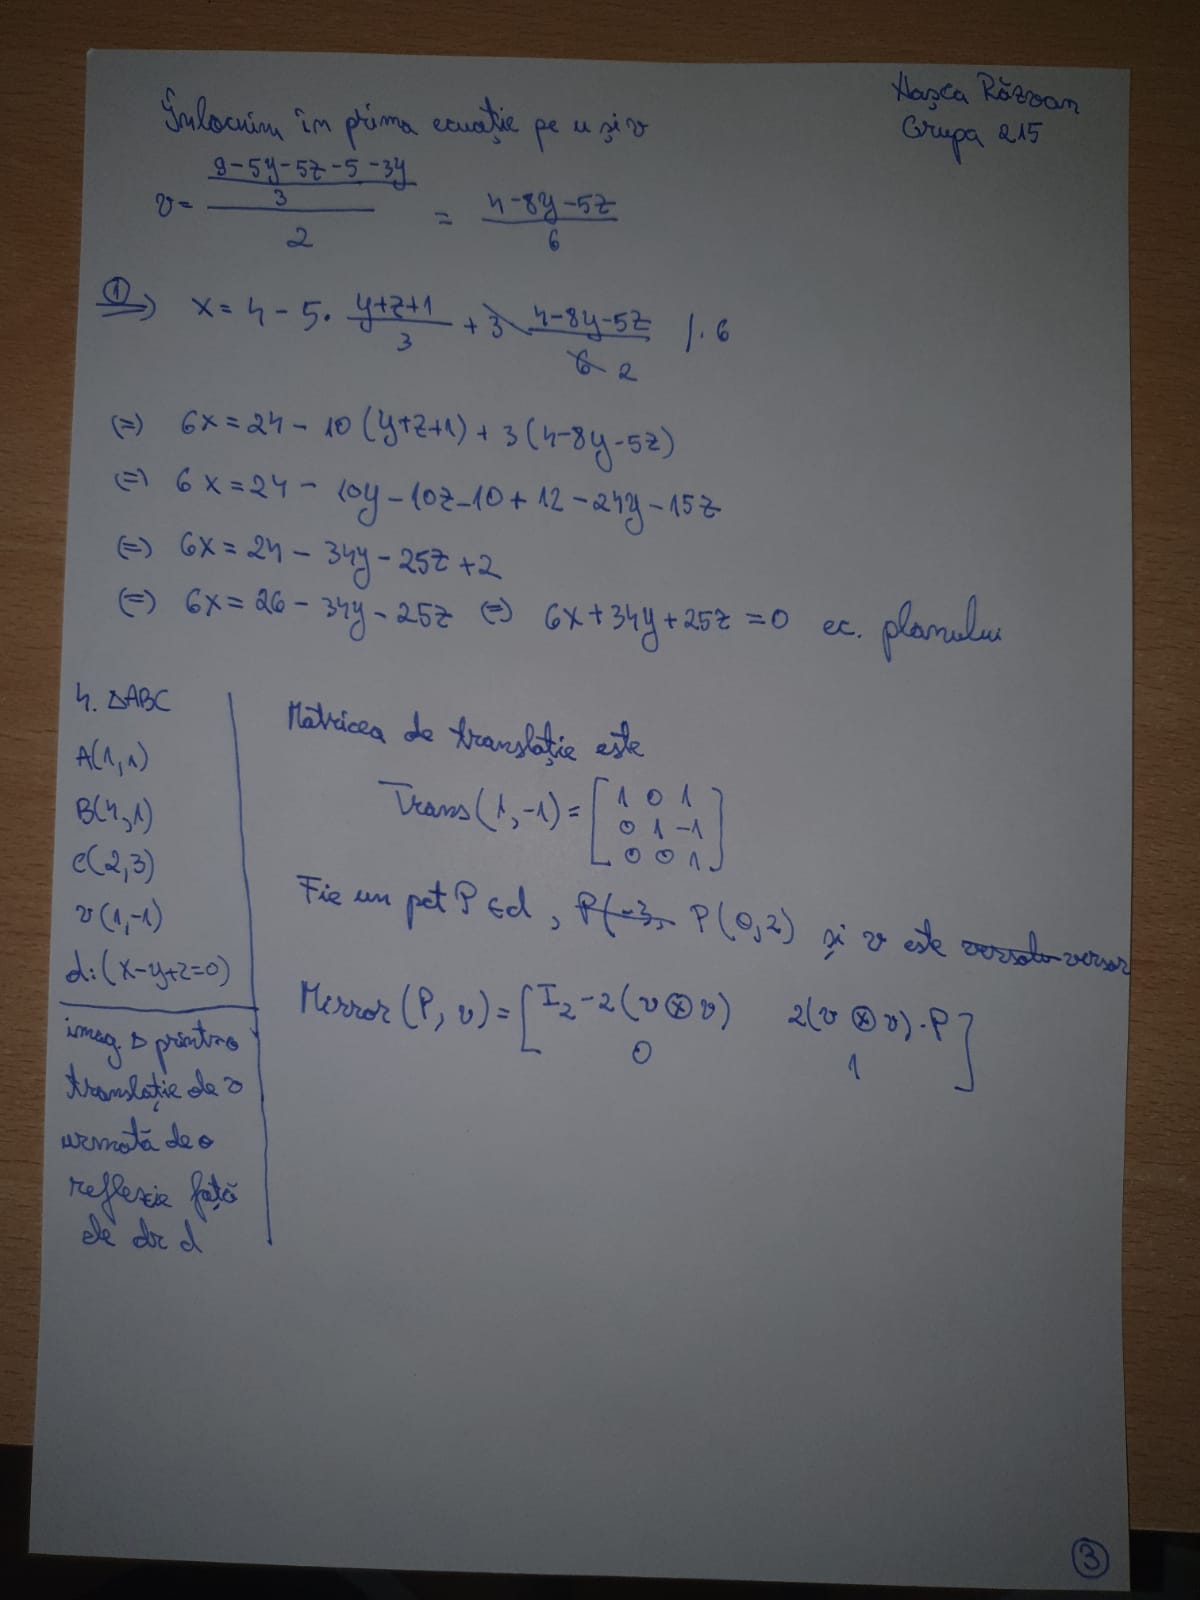 Hașca Răzvan
Grupa 215
Înlocuim în prima ecuație pe u și v
v = ((9-5y-5z-5-3y)/3)/2 = (4-8y-5z)/6
① ⇒ x = 4 - 5 · (y+z+1)/3 + 3 (4-8y-5z)/6 2 /· 6
(=) 6x = 24 - 10(y+z+1) + 3(4-8y-5z)
(=) 6x = 24 - 10y - 10z - 10 + 12 - 24y - 15z
(=) 6x = 24 - 34y - 25z + 2
(=) 6x = 26 - 34y - 25z (=) 6x + 34y + 25z = 0 ec. planului
4. △ABC
A(1,1)
B(4,1)
C(2,3)
v(1,-1)
d: (x-y+2=0)
imag. △ printr-o
translație de v
urmată de o
reflexie față
de dr d
Matricea de translație este
Trans(1,-1) = [1 0 1
0 1 -1
0 0 1]
Fie un pct P∈d, P(-3, P(0,2) și v este versor
Mirror(P, v) = [I₂ - 2(v⊗v) 2(v⊗v)·P
0 1]
③